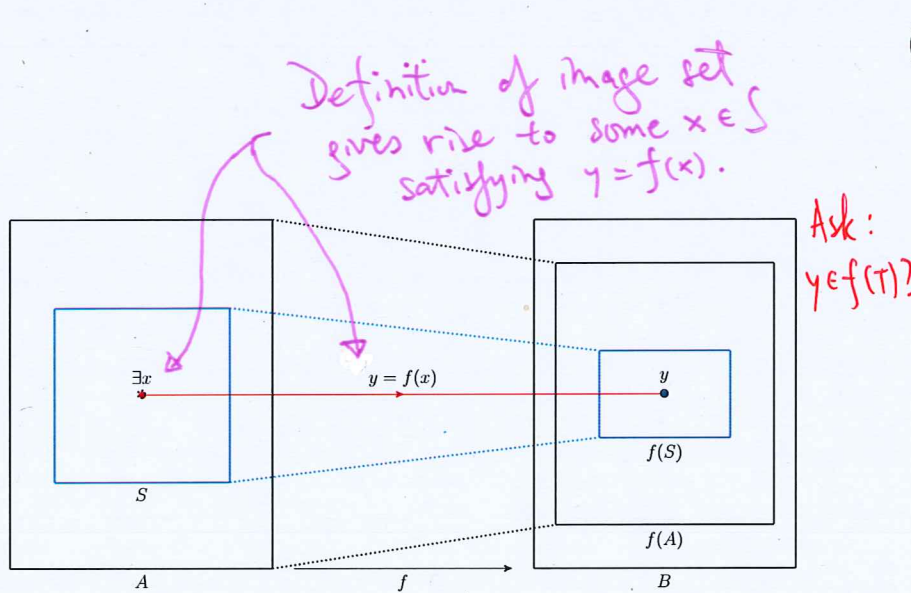 Definition of image set
gives rise to some x ∈ S
satisfying y = f(x).
Ask:
y ∈ f(T)?
∃x
y = f(x)
y
f(S)
S
f(A)
A
f
B